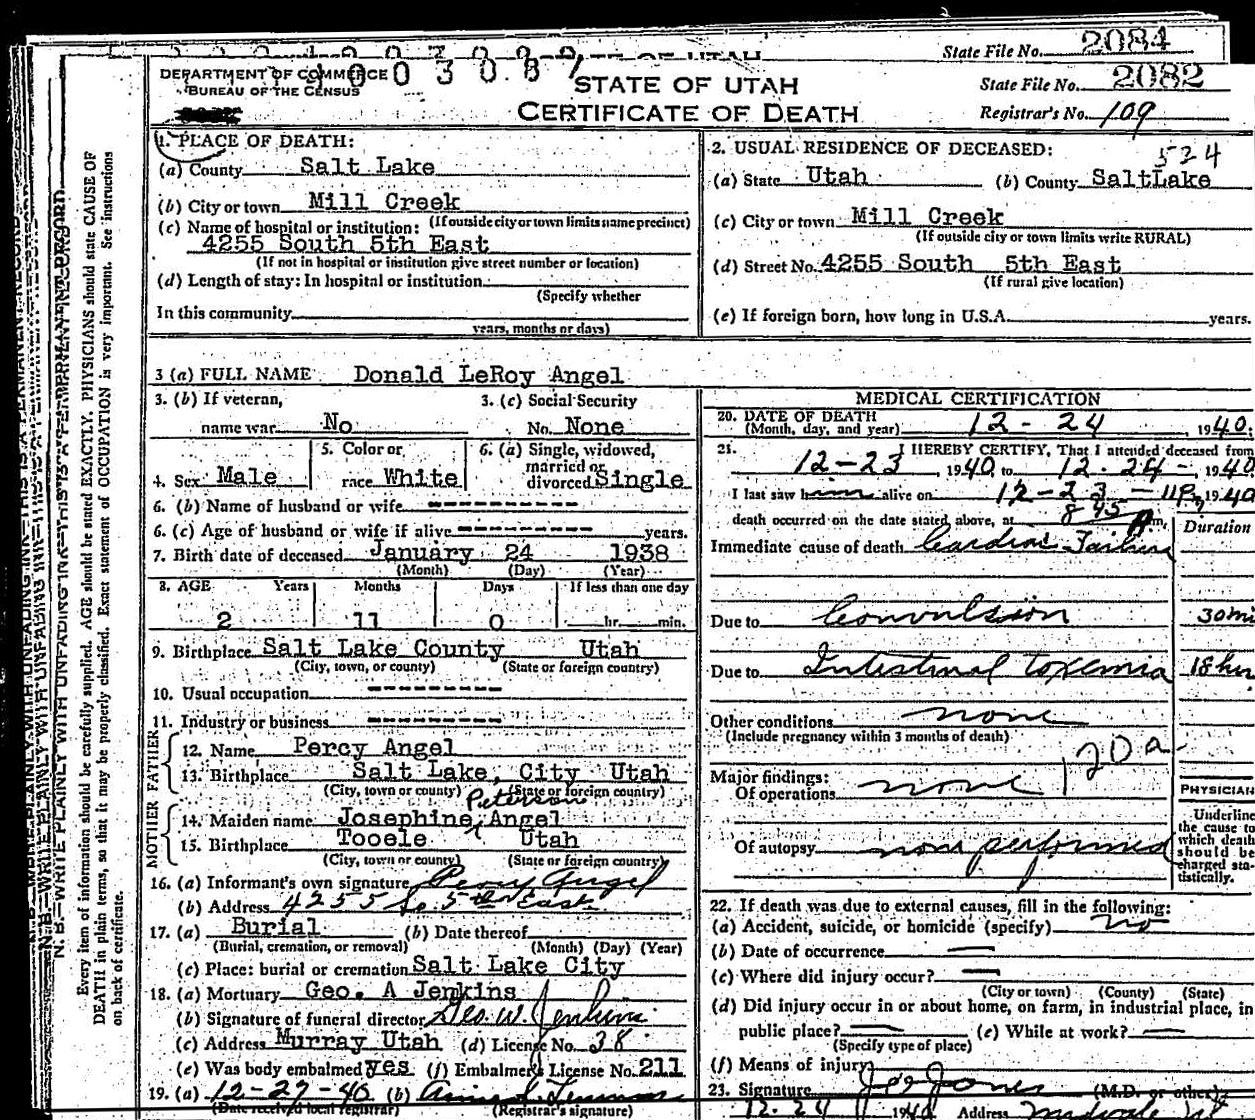 State File No. 2084
DEPARTMENT OF COMMERCE
BUREAU OF THE CENSUS
STATE OF UTAH
CERTIFICATE OF DEATH
State File No. 2082
Registrar's No. 109
1. PLACE OF DEATH:
(a) County Salt Lake
(b) City or town Mill Creek
(If outside city or town limits name precinct)
(c) Name of hospital or institution:
4255 South 5th East
(If not in hospital or institution give street number or location)
(d) Length of stay: In hospital or institution
(Specify whether
In this community
years, months or days)
2. USUAL RESIDENCE OF DECEASED:
524
(a) State Utah (b) County SaltLake
(c) City or town Mill Creek
(If outside city or town limits write RURAL)
(d) Street No. 4255 South 5th East
(If rural give location)
(e) If foreign born, how long in U.S.A. years.
3 (a) FULL NAME Donald LeRoy Angel
3. (b) If veteran, name war No
3. (c) Social Security No. None
4. Sex Male
5. Color or race White
6. (a) Single, widowed, married or divorced Single
6. (b) Name of husband or wife
6. (c) Age of husband or wife if alive years.
7. Birth date of deceased January 24 1938
(Month) (Day) (Year)
8. AGE Years Months Days If less than one day
2 11 0 hr. min.
9. Birthplace Salt Lake County Utah
(City, town, or county) (State or foreign country)
10. Usual occupation
11. Industry or business
FATHER
12. Name Percy Angel
13. Birthplace Salt Lake, City Utah
(City, town or county) (State or foreign country)
MOTHER
Peterson
14. Maiden name Josephine Angel
15. Birthplace Tooele Utah
(City, town or county) (State or foreign country)
16. (a) Informant's own signature Percy Angel
(b) Address 4255 So. 5th East
17. (a) Burial (b) Date thereof
(Burial, cremation, or removal) (Month) (Day) (Year)
(c) Place: burial or cremation Salt Lake City
18. (a) Mortuary Geo. A Jenkins
(b) Signature of funeral director Geo. W. Jenkins
(c) Address Murray Utah (d) License No. 38
(e) Was body embalmed yes (f) Embalmer's License No. 211
19. (a) 12-27-40 (b)
(Date received local registrar) (Registrar's signature)
MEDICAL CERTIFICATION
20. DATE OF DEATH
(Month, day, and year) 12-24 1940.
21. I HEREBY CERTIFY, That I attended deceased from
12-23, 1940 to 12-24-, 1940
I last saw him alive on 12-23-11P, 1940
death occurred on the date stated above, at 8 45 A m.
Duration
Immediate cause of death Cardiac Failure
Due to Convulsion 30 mi
Due to Intestinal toxemia 18 hr
Other conditions none
(Include pregnancy within 3 months of death)
120a
Major findings:
Of operations none
PHYSICIAN
Of autopsy none performed
Underline
the cause to
which death
should be
charged sta-
tistically.
22. If death was due to external causes, fill in the following:
(a) Accident, suicide, or homicide (specify) no
(b) Date of occurrence
(c) Where did injury occur?
(City or town) (County) (State)
(d) Did injury occur in or about home, on farm, in industrial place, in
public place? (e) While at work?
(Specify type of place)
(f) Means of injury
23. Signature Jones (M.D. or other)
12.24 1940 Address
N. B.—WRITE PLAINLY WITH UNFADING INK—THIS IS A PERMANENT RECORD
Every item of information should be carefully supplied. AGE should be stated EXACTLY. PHYSICIANS should state CAUSE OF
DEATH in plain terms, so that it may be properly classified. Exact statement of OCCUPATION is very important. See instructions
on back of certificate.